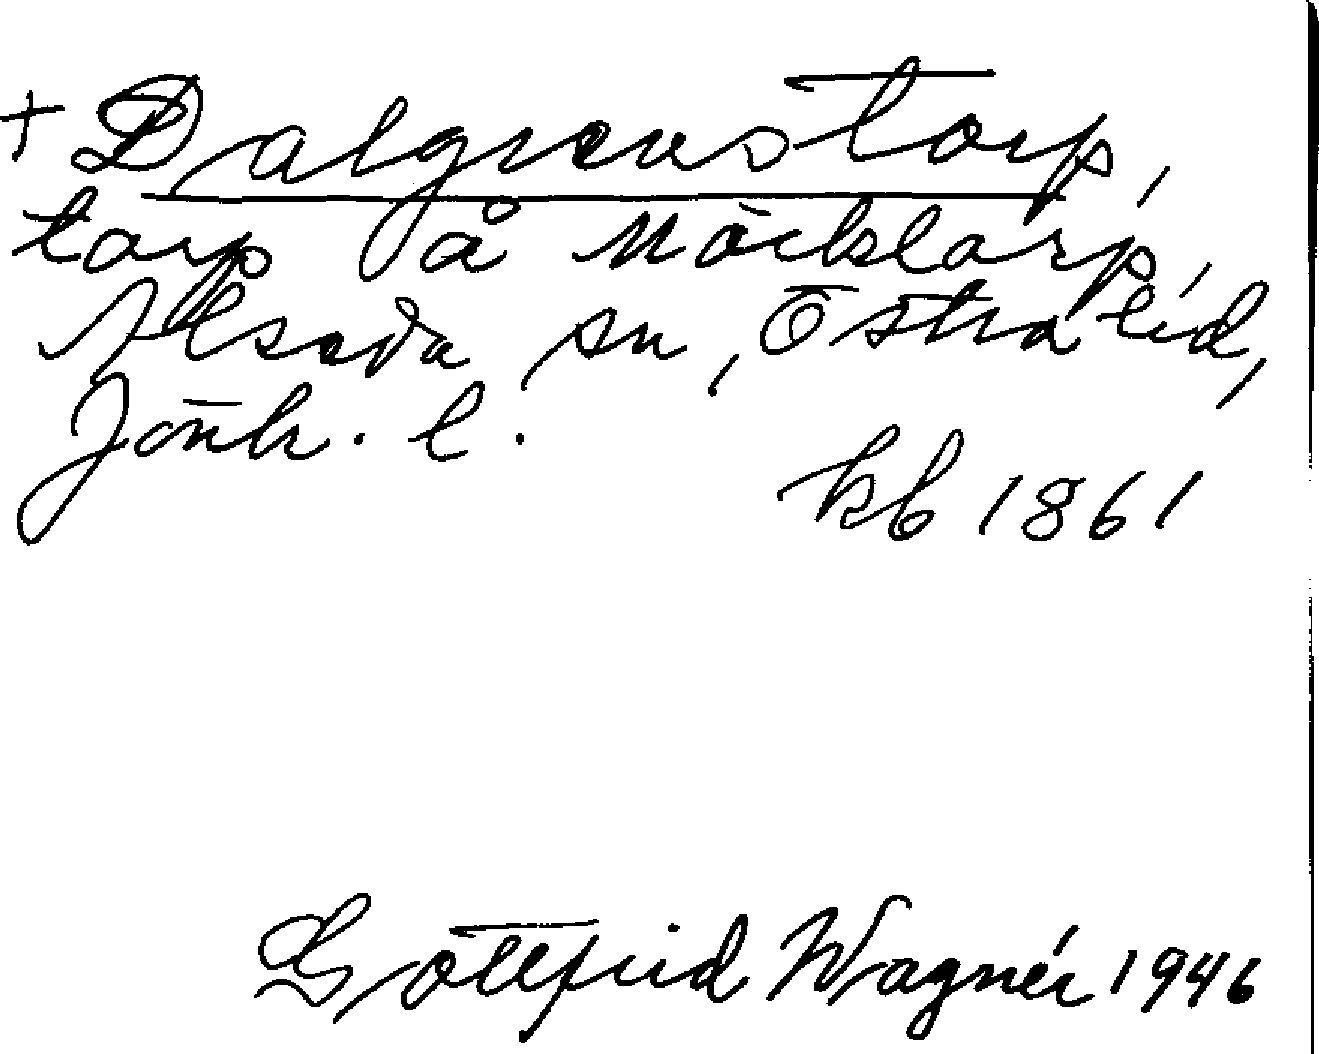 + Dalgrenstorp,
torp å Mörktorp,
Alseda sn, Östra hd,
Jönk. l.
kb 1861
Gottfrid Wagnér 1946